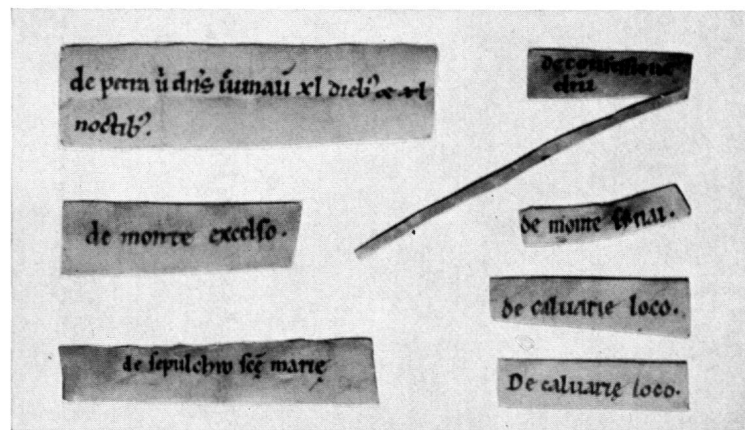 de petra u̅ dn̅s ieiunau̅ xl dieb; & xl
noctib;.
de monte excelso.
de sepulchro sc̅ę marię
de confessione
de monte sẏnai.
de caluarie loco.
De caluarię loco.